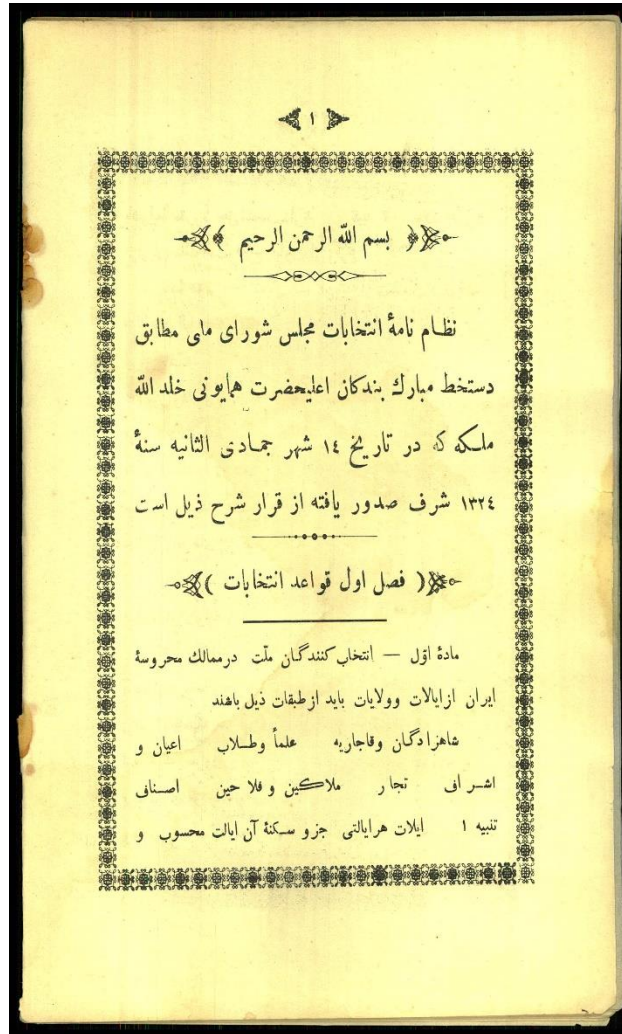 ١
بسم الله الرحمن الرحيم
نظام نامهٔ انتخابات مجلس شورای ملی مطابق
دستخط مبارك بندكان اعليحضرت همايونی خلد الله
ملكه كه در تاريخ ١٤ شهر جمادی الثانيه سنهٔ
١٣٢٤ شرف صدور يافته از قرار شرح ذيل است
( فصل اول قواعد انتخابات )
مادهٔ اوّل — انتخاب كنندگان ملّت درممالك محروسهٔ
ايران ازايالات وولايات بايد ازطبقات ذيل باشند
شاهزادگان وقاجاريه علمأ وطلاب اعيان و
اشرافی تجار ملاكين وفلاحين اصنافی
تنبيه ١ ايلات هرايالتی جزو سكنهٔ آن ايالت محسوب و